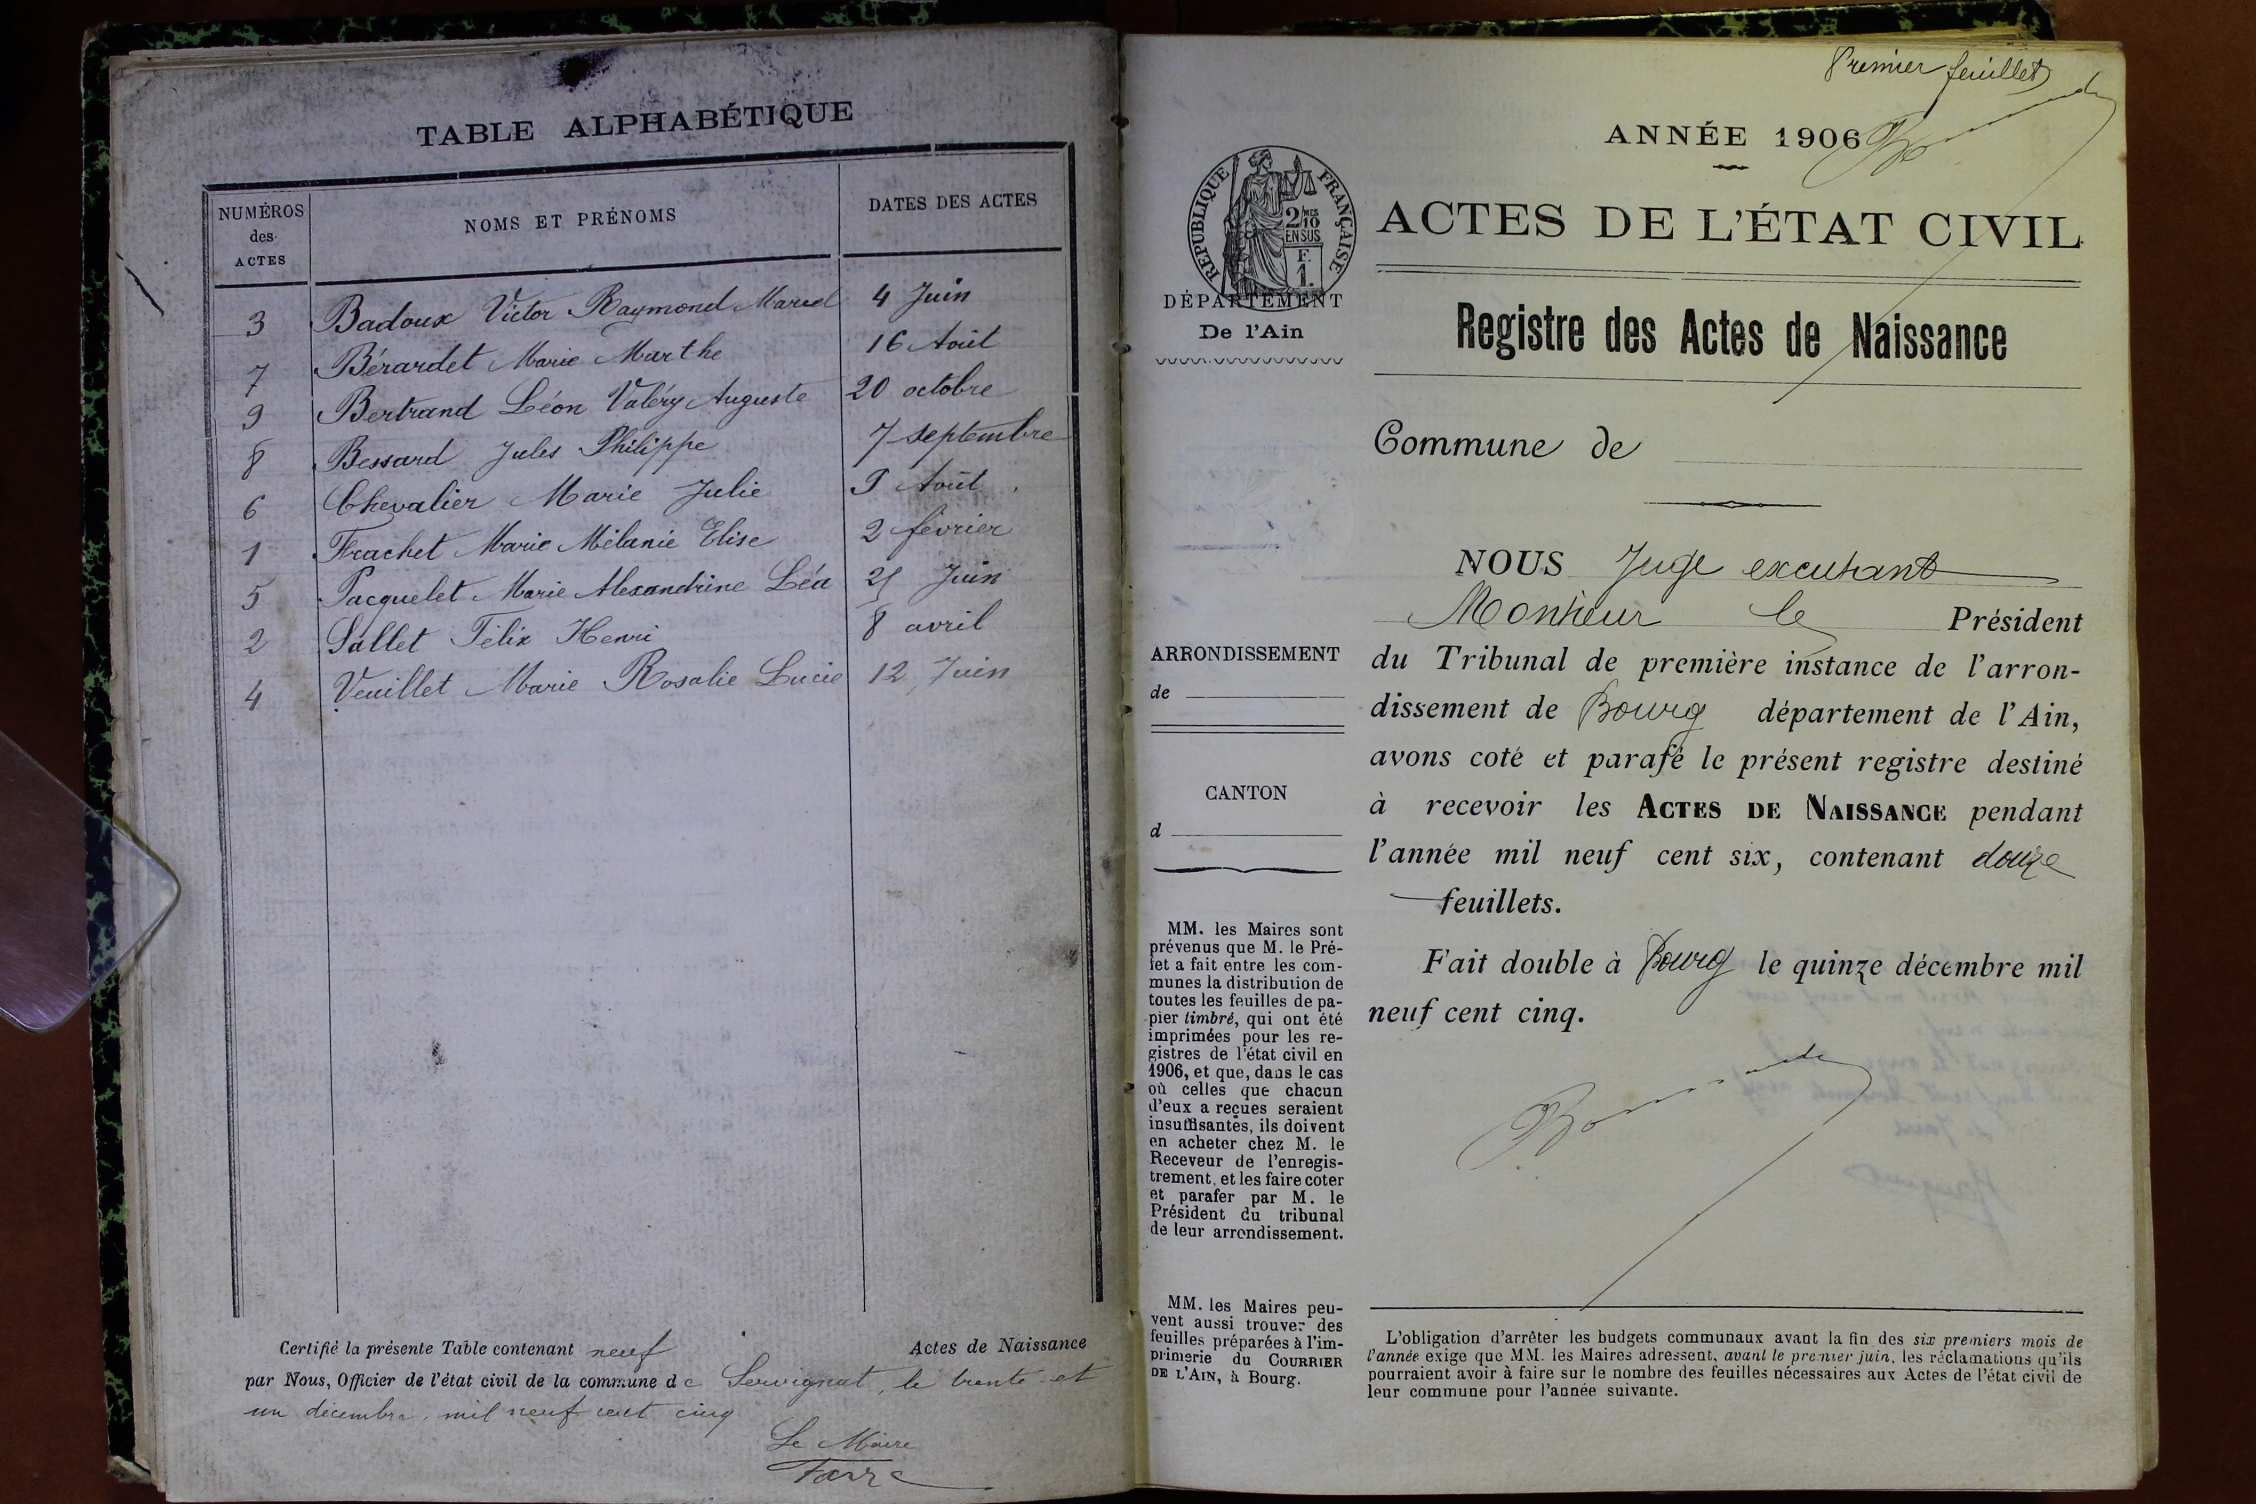 TABLE ALPHABÉTIQUE
NUMÉROS des ACTES
NOMS ET PRÉNOMS
DATES DES ACTES
3 Badoux Victor Raymond Marcel 4 Juin
7 Bérardet Marie Marthe 16 Août
9 Bertrand Léon Valéry Auguste 20 octobre
8 Bessard Jules Philippe 7 septembre
6 Chevalier Marie Julie 9 Août
1 Frachet Marie Mélanie Elise 2 février
5 Pacquelet Marie Alexandrine Léa Juin
2 Sallet Félix Henri 8 avril
4 Veuillet Marie Rosalie Lucie 12 Juin
Certifié la présente Table contenant neuf Actes de Naissance
par Nous, Officier de l'état civil de la commune de Servignat, le trente et
un décembre, mil neuf cent cinq
Le Maire
Farre
Premier feuillet
ANNÉE 1906
RÉPUBLIQUE FRANÇAISE
2/10 MES
EN SUS
F.
1.
ACTES DE L'ÉTAT CIVIL
DÉPARTEMENT
De l'Ain
Registre des Actes de Naissance
Commune de
NOUS Juge
Monsieur le Président
du Tribunal de première instance de l'arron-
dissement de Bourg département de l'Ain,
avons coté et parafé le présent registre destiné
à recevoir les ACTES DE NAISSANCE pendant
l'année mil neuf cent six, contenant douze
feuillets.
Fait double à Bourg le quinze décembre mil
neuf cent cinq.
ARRONDISSEMENT
de
CANTON
d
MM. les Maires sont
prévenus que M. le Pré-
fet a fait entre les com-
munes la distribution de
toutes les feuilles de pa-
pier timbré, qui ont été
imprimées pour les re-
gistres de l'état civil en
1906, et que, dans le cas
où celles que chacun
d'eux a reçues seraient
insuffisantes, ils doivent
en acheter chez M. le
Receveur de l'enregis-
trement, et les faire coter
et parafer par M. le
Président du tribunal
de leur arrondissement.
MM. les Maires peu-
vent aussi trouver des
feuilles préparées à l'im-
primerie du COURRIER
DE L'AIN, à Bourg.
L'obligation d'arrêter les budgets communaux avant la fin des six premiers mois de
l'année exige que MM. les Maires adressent, avant le premier juin, les réclamations qu'ils
pourraient avoir à faire sur le nombre des feuilles nécessaires aux Actes de l'état civil de
leur commune pour l'année suivante.